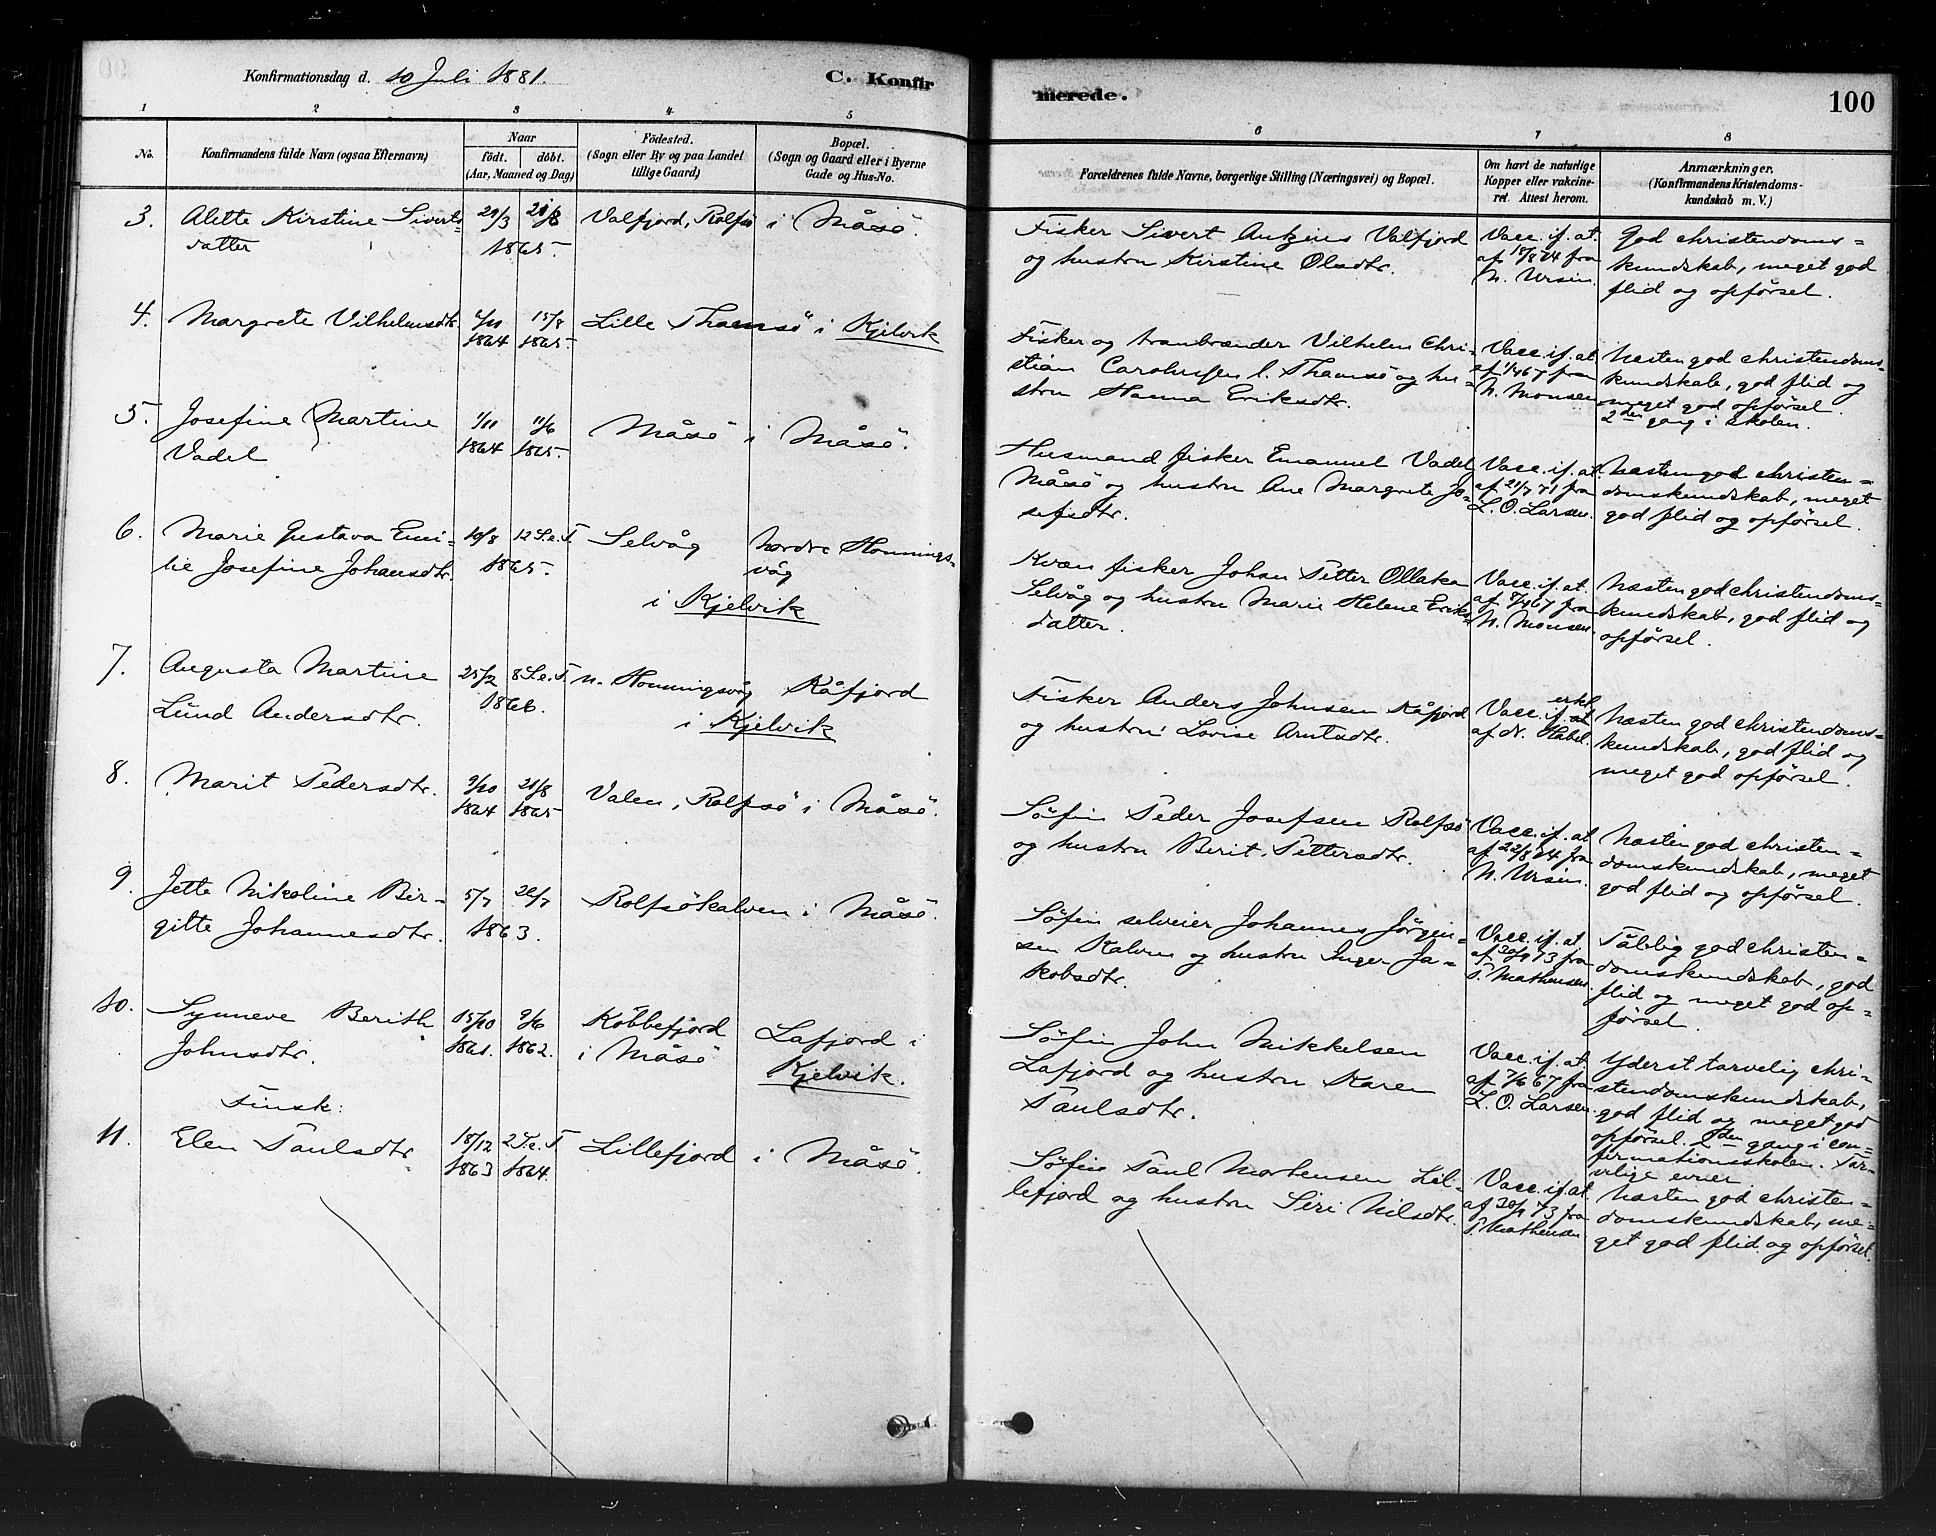 Konfirmationsdag d. 10 Juli 1881. C. Konfir
merede. 100
1 2 3 4 5 6 7 8
No.
Konfirmandens fulde Navn (ogsaa Efternavn)
Naar
födt. döbt.
(Aar, Maaned og Dag)
Födested.
(Sogn eller By og paa Landet
tillige Gaard)
Bopæl.
(Sogn og Gaard eller i Byerne
Gade og Hus-No.
Forældrenes fulde Navne, borgerlige Stilling (Næringsvei) og Bopæl.
Om havt de naturlige
Kopper eller vakcine-
ret. Attest herom.
Anmærkninger.
(Konfirmandens Kristendoms-
kundskab m. V.)
3. Alette Kirstine Siverts-
datter
29/3
1865.
Valfjord, Rolfsö i Måsö.
Fisker Sivert Valfjord
og hustru Kirstine Olsdtr.
Vacc. if. at.
af 18/8 74 fra
N. Ursin.
God christendoms-
kundskab, meget god
flid og opförsel.
4. Margrete Vilhelmsdtr.
1864
15/8
1865.
Lille Thamsö i Kjelvik
Fisker og tranbrænder Vilhelm Chri-
stian Carolussen l. Thamsö og hu-
stru Hanna Eriksdtr.
Vacc. if. at.
67 fra
N. Monsen
Næsten god christendoms-
kundskab, god flid og
meget god opförsel.
2den gang i skolen.
5. Josefine Martine
Vadel
1/11
1864
11/6
1865.
Måsö i Måsö.
Husmand fisker Emanuel Vadel
Måsö og hustru Ane Margrete Jo-
sefsdtr.
Vacc. if. at.
af 21/7 71 fra
L. O. Larsen.
Næsten god christen-
domskundskab, meget
god flid og opförsel.
6. Marie Gustava Emi-
lie Josefine Johansdtr.
19/8
12 S. e. T.
1865.
Selvåg
Nordre Honnings-
våg
i Kjelvik
Kvæn fisker Johan Petter Ollaka
Selvåg og hustru Marie Helene Eriks-
datter.
Vacc. if. at.
af 8/4 67 fra
N. Monsen.
Næsten god christendoms-
kundskab, god flid og
opförsel.
7. Augusta Martine
Lund Andersdtr.
25/2
8 S. e. T.
1866.
n. Honningsvåg Kåfjord
i Kjelvik
Fisker Anders Johnsen Kåfjord
og hustru Lovise Arntsdtr.
Vacc. if. erkl.
af dr. Habel.
Næsten god christendoms-
kundskab, god flid og
meget god opförsel.
8. Marit Pedersdtr.
9/10
1864
20/8
1865
Valen, Rolfsö i Måsö.
Söfin Peder Josefsen Rolfsö
og hustru Berit Pettersdtr.
Vacc. if. at.
af 22/8 74 fra
N. Ursin.
Næsten god christen-
domskundskab, meget
god flid og opförsel.
9. Jette Nikoline Bir-
gitte Johannesdtr.
5/7
26/7
1863.
Rolfsökalven i Måsö.
Söfin selveier Johannes Jörgen-
sen Kalven og hustru Inger Ja-
kobsdtr.
Vacc. if. at.
af 73 fra
P. Mathensen.
Tålelig god christen-
domskundskab, god
flid og meget god op-
försel.
10. Synneve Berith
Johnsdtr.
15/10
1861.
9/6
1862.
Kobbefjord
i Måsö
Lafjord i
Kjelvik.
Söfin John Mikkelsen
Lafjord og hustru Karen
Paulsdtr.
Vacc. if. at.
af 7/6 67 fra
L. O. Larsen
Yderst tarvelig chri-
stendomskundskab,
god flid og meget god
opförsel. 2den gang i con-
firmationsskolen. Tar-
velige evner
Finsk:
11. Elen Paulsdtr
18/12
1863
2 S. e. T.
1864.
Lillefjord i Måsö.
Söfin Paul Mortensen Lil-
lefjord og hustru Siri Nilsdtr.
Vacc. if. at.
af 73 fra
P. Mathensen
Næsten god christen-
domskundskab, me-
get god flid og opförsel.